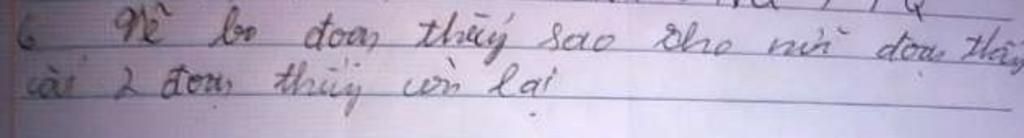 6 Vẽ ba đoạn thẳng sao cho mỗi đoạn thẳng
cắt 2 đoạn thẳng còn lại